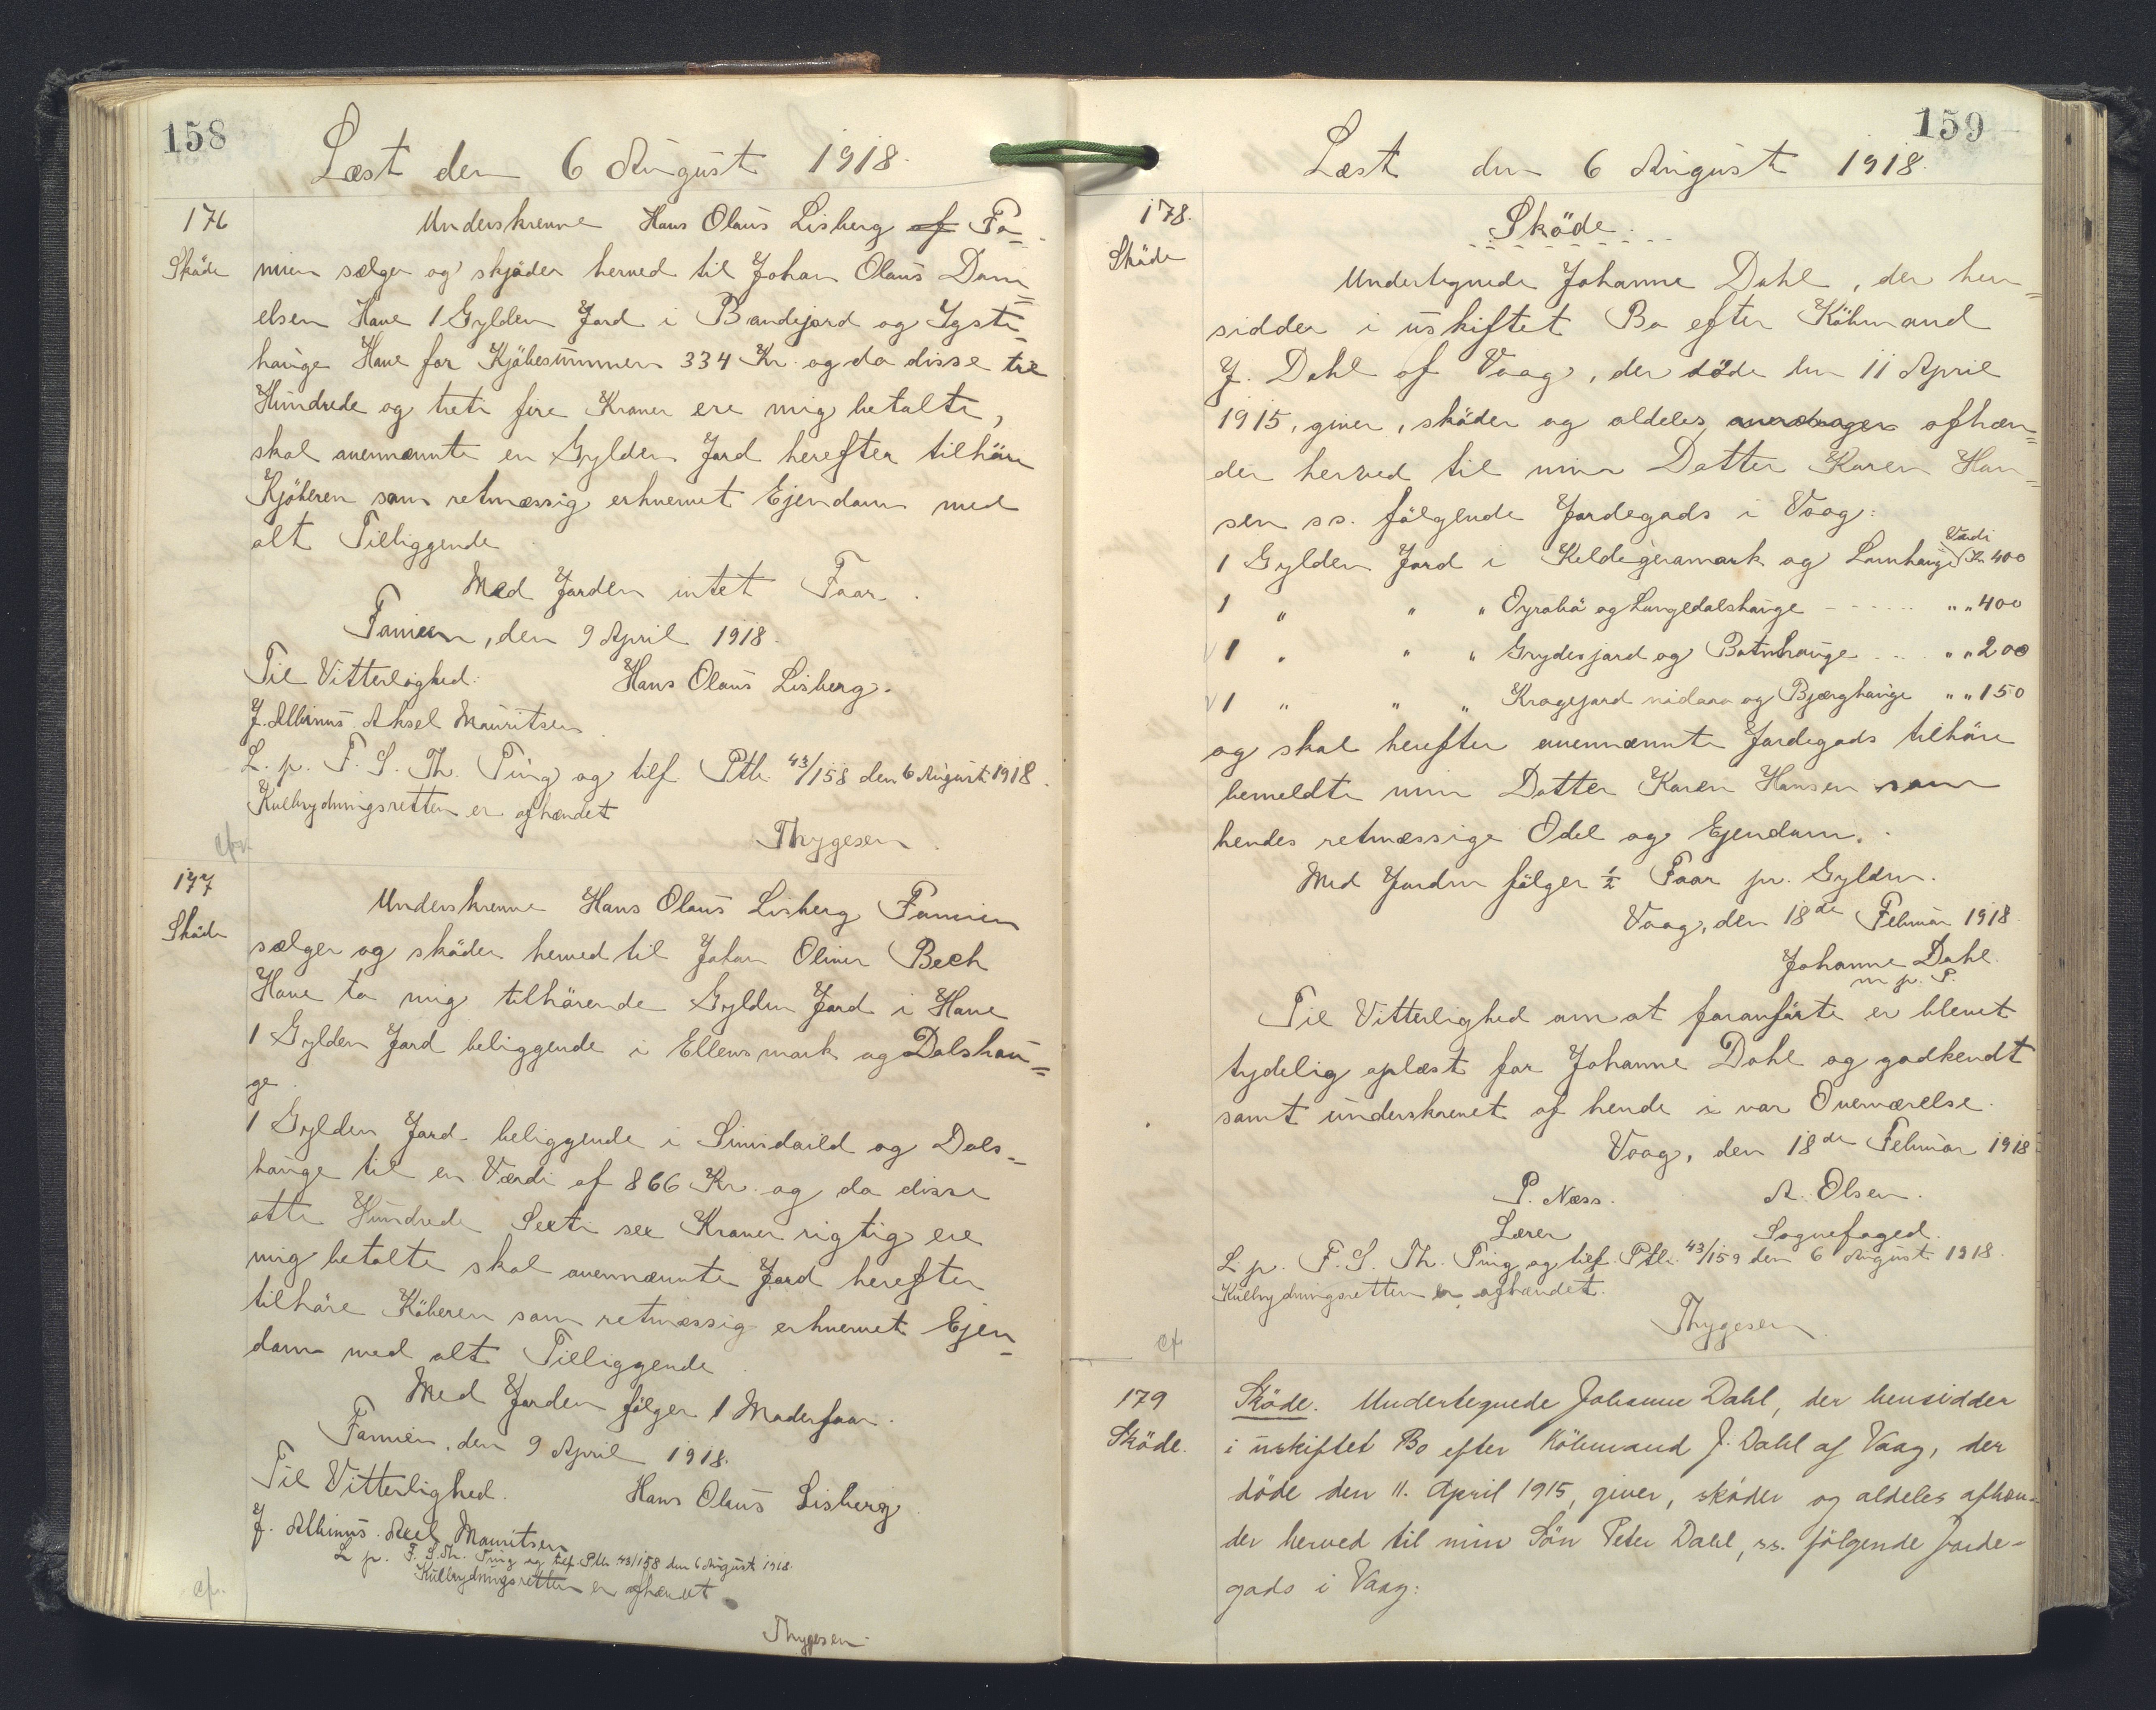 158
Læst den 6 August 1918.
176
Skøde
Underskrevne Hans Olaus Lisberg af Fa=
mien sælger og skjøder herved til Johan Olaus Dani=
elsen Hove 1 Gylden Jord i Bandejord og Ygste=
hauge Hove for Kjøbesummen 334 Kr. og da disse tre
Hundrede og treti fire Kroner ere mig betalte,
skal ovennævnte en Gylden Jord herefter tilhøre
Kjøberen som retmæssig erhvervet Ejendom med
alt Tilliggende
Med Jorden intet Faar.
Famien, den 9 April 1918.
Til Vitterlighed:
Hans Olaus Lisberg.
J. Albinus Aksel Mauritsen
L. p. F. S. Th. Ting og tilf. Ptb. 43/158 den 6 August 1918.
Kulbrydningsretten er afhændet
Thygesen
cfr.
177
Skøde
Underskrevne Hans Olaus Lisberg Famien
sælger og skøder herved til Johan Oliver Bech
Hove to mig tilhørende Gylden Jord i Hove
1 Gylden Jord beliggende i Ellensmark og Dalshau=
ge
1 Gylden Jord beliggende i Simsdaild og Dals=
hauge til en Værdi af 866 Kr. og da disse
otte Hundrede Sexti sex Kroner rigtig ere
mig betalte skal ovennævnte Jord herefter
tilhøre Køberen som retmæssig erhvervet Ejen=
dom med alt Tilliggende.
Med Jorden følger 1 Moderfaar.
Famien, den 9 April 1918.
Til Vitterlighed.
Hans Olaus Lisberg.
J. Albinus. Axel Mauritsen
L. p. F. S. Th. Ting og tilf. Ptb. 43/158 den 6 August 1918.
Kulbrydningsretten er afhændet
Thygesen
cfr.
159
Læst den 6 August 1918.
178.
Skøde
Sköde.
Undertegnede Johanne Dahl, der hen=
sidder i uskiftet Bo efter Köbmand
J. Dahl af Vaag, der döde den 11 April
1915, giver, sköder og aldeles overdrager afhæn=
der herved til min Datter Karen Han=
sen ss. fölgende Jordegods i Vaag:
Værdi
1 Gylden Jord i Keldegeramark og Lamhauge Kr. 400
1 " " " Oyrabö og Lungedalshauge - - - - " " 400
1 " " " Grydesjord og Botnhauge - - - " " 200
1 " " " Krogejord nidara og Bjærghauge " " 150
og skal herefter ovennævnte Jordegods tilhöre
bemeldte min Datter Karen Hansen som
hendes retmæssige Odel og Ejendom.
Med Jorden fölger ½ Faar pr. Gylden.
Vaag, den 18de Februar 1918.
Johanne Dahl.
m. p. P.
Til Vitterlighed om at foranförte er blevet
tydelig oplæst for Johanne Dahl og godkendt
samt underskrevet af hende i vor Overværelse.
Vaag, den 18de Februar 1918
P. Næss.
A. Olsen.
Lærer
Sognefoged.
L. p. F. S. Th. Ting og tilf. Ptb. 43/159 den 6 August 1918.
Kulbrydningsretten er afhændet.
Thygesen
cfr.
179
Sköde.
Sköde. Undertegnede Johanne Dahl, der hensidder
i uskiftet Bo efter Köbmand J. Dahl af Vaag, der
döde den 11. April 1915, giver, sköder og aldeles afhæn-
der herved til min Sön Peter Dahl, ss. fölgende Jorde-
gods i Vaag: